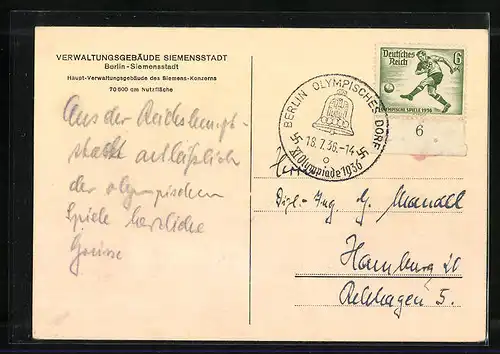 VERWALTUNGSGEBÄUDE SIEMENSSTADT
Berlin-Siemensstadt
Haupt-Verwaltungsgebäude des Siemens-Konzerns
70 600 qm Nutzfläche
Aus der Reichshaupt-
stadt anläßlich
der olympischen
Spiele herzliche
Grüsse
BERLIN OLYMPISCHES DORF
18.7.36.-14
XI Olympiade 1936
Deutsches Reich 6
OLYMPISCHE SPIELE 1936
6
Herrn
Dipl.-Ing. G. Mandel
Hamburg 21
5.